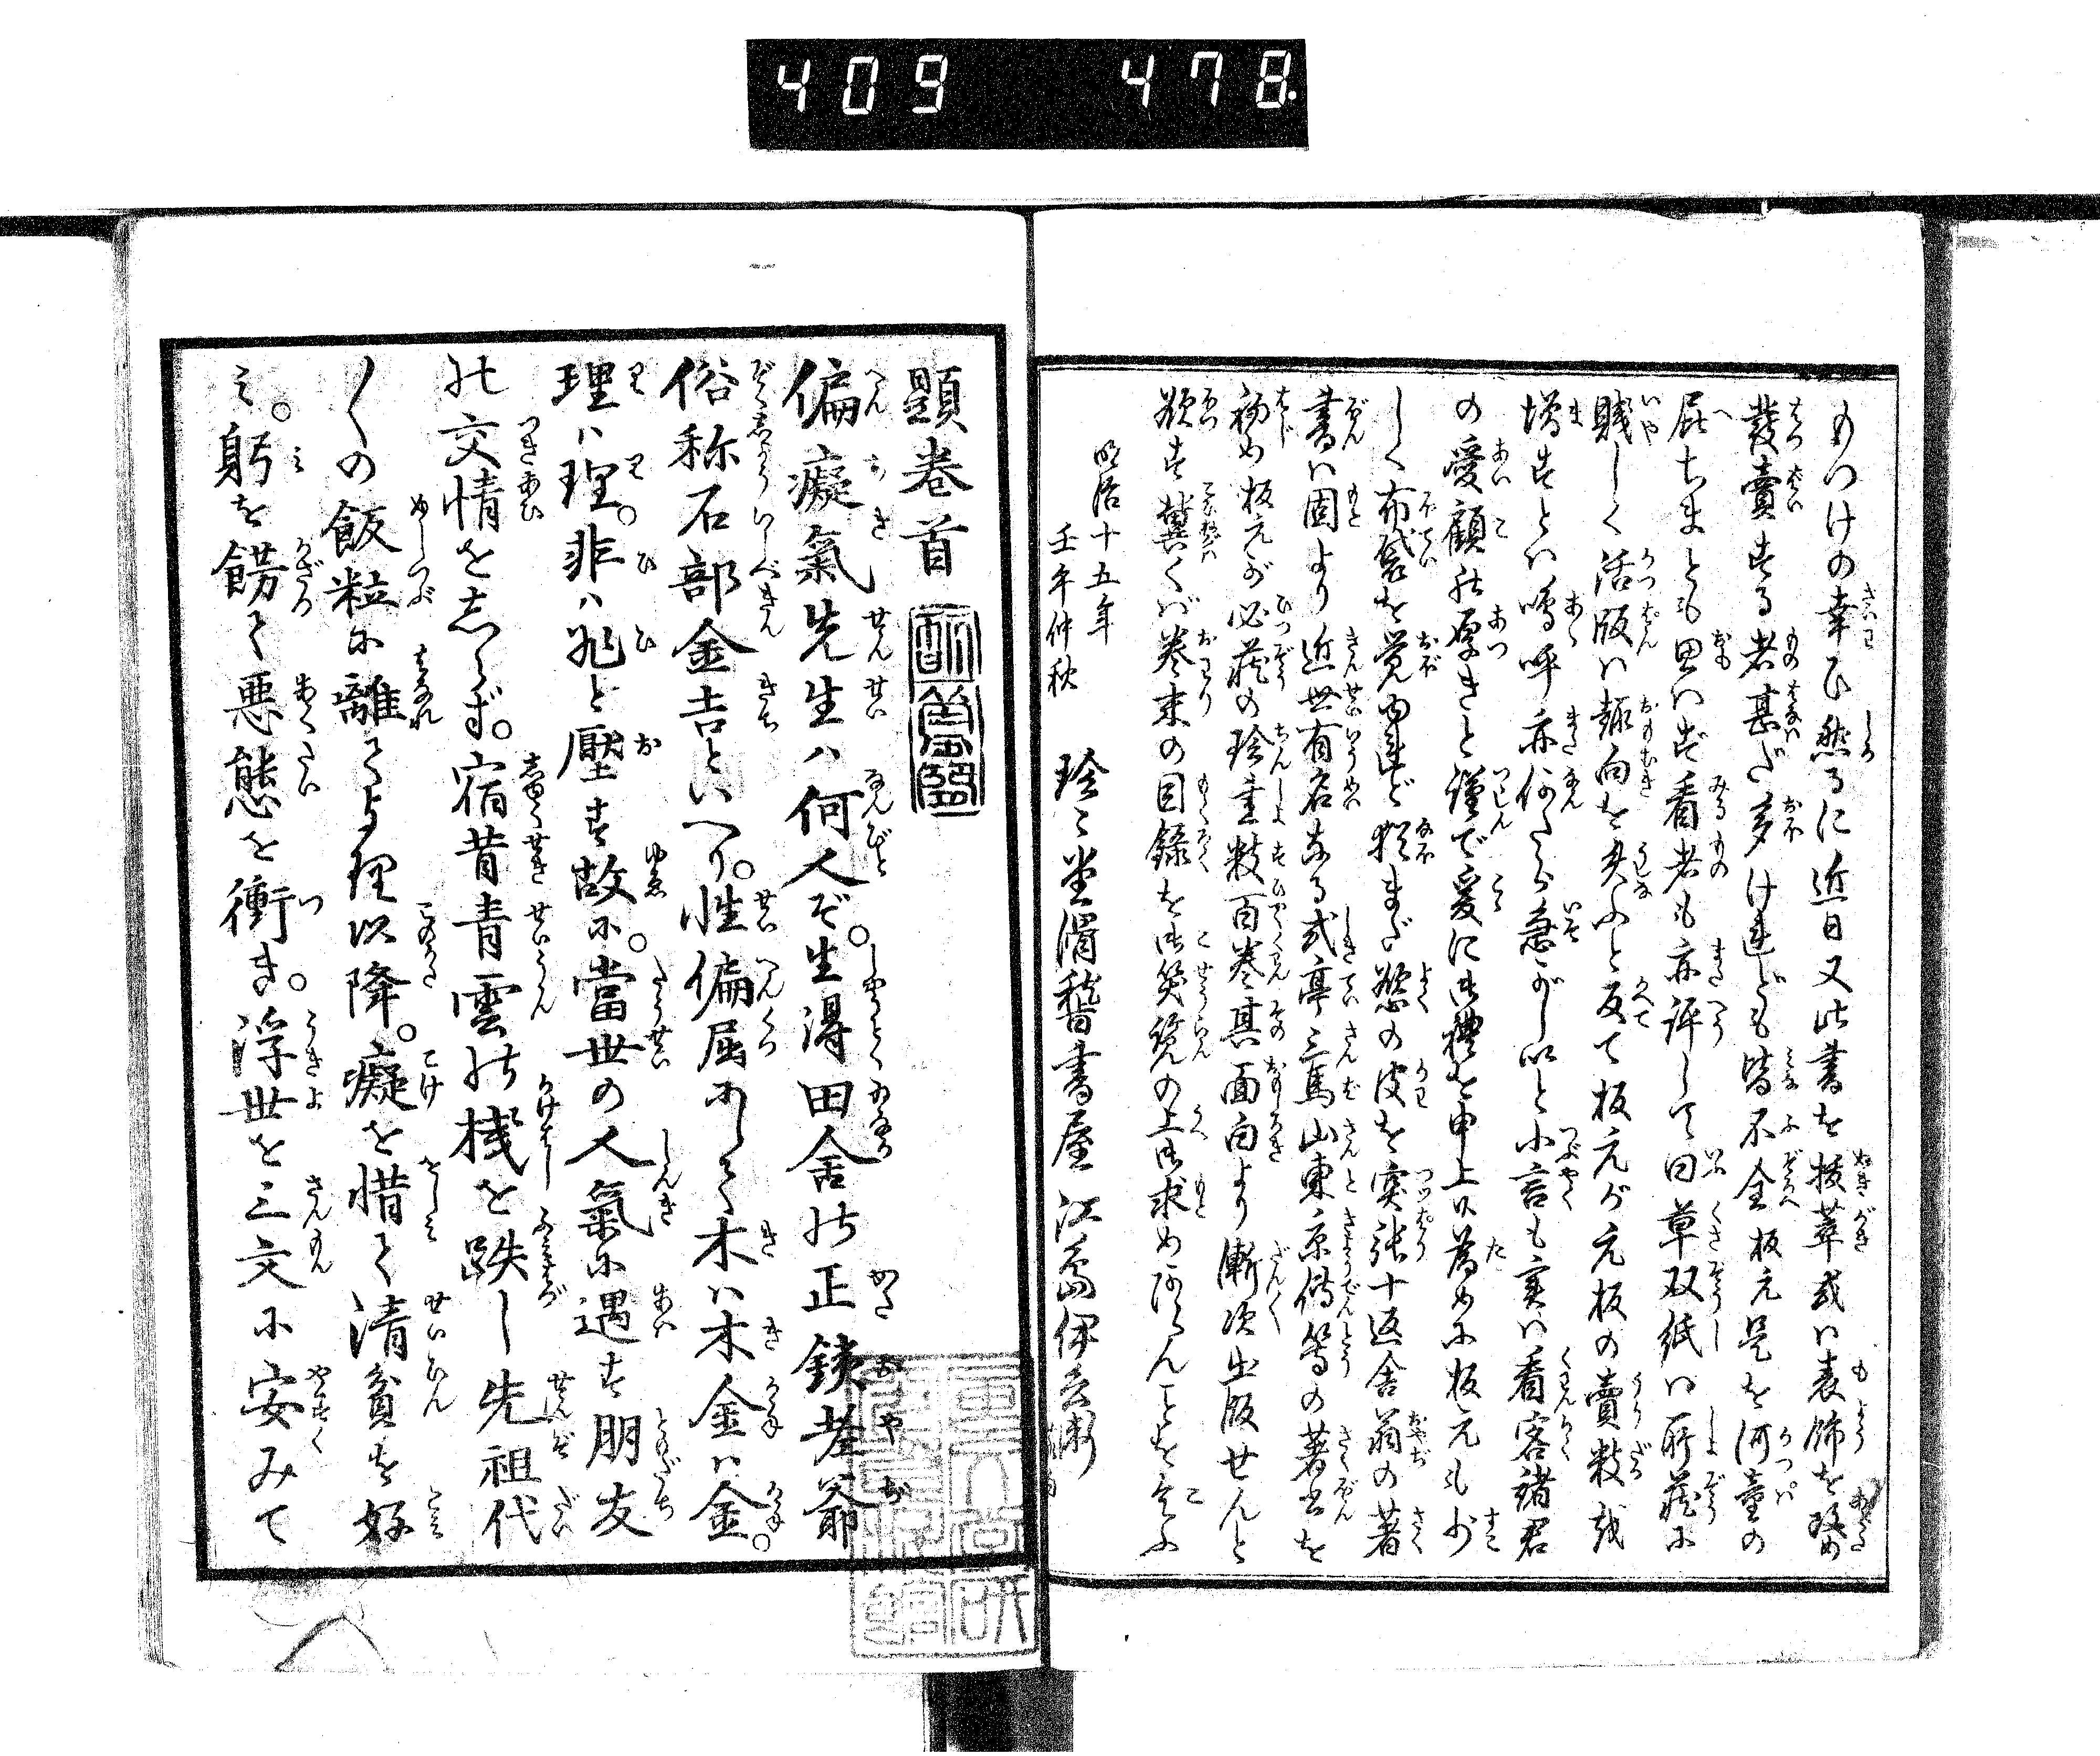 409 478.
めつけの幸ひ然るに近日又此書を抜萃或ハ表飾を改め
發賣する者甚だ多けれども皆不全板元是を河童の
屁ちまとも思ハず看者も亦評して曰草双紙ハ所蔵に
賤しく活版ハ趣向を失ふと反て板元が元板の賣数を
増すとハ嗚呼亦何たら急がしいと小言も実ハ看客諸君
の愛顧の厚きと謹で爰に御禮を申上升為めに板元も少
しく布袋を覚内連ど猶まだ慾の皮を突張十返舎翁の著
書ハ固より近世有名なる式亭三馬山東京傳等の著書を
初め板元が必蔵の珍書数百巻其面白より漸次出版せんと
欲す冀くバ巻末の目録を御笑覧の上御求め
明治十五年
壬午仲秋
珍々堂滑稽書屋 江島伊兵衛
題巻首
偏癡氣先生ハ何人ぞ。生得田舎の正銕老爺
俗称石部金吉といへり。性偏屈にして木ハ木金ハ金。
理ハ理。非ハ非と壓す故に。當世の人氣に遇す朋友
の交情をしらず。宿昔青雲の棧を跌し先祖代
〳〵の飯粒に離てより以降。癡を惜て清貧を好
ミ。躬を餝て悪態を衝き。浮世を三文に安みて